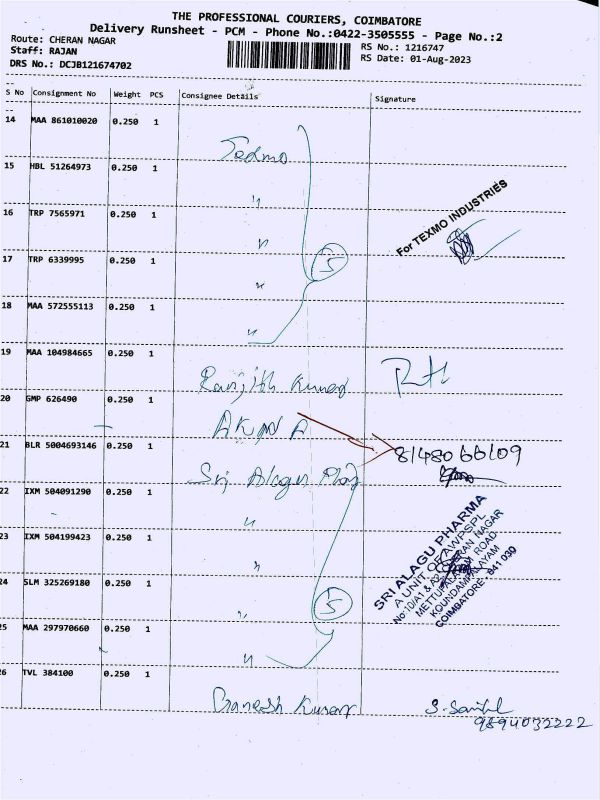 THE PROFESSIONAL COURIERS, COIMBATORE
Delivery Runsheet - PCM - Phone No.:0422-3505555 - Page No.:2
Route: CHERAN NAGAR
Staff: RAJAN
DRS No.: DCJB121674702
RS No.: 1216747
RS Date: 01-Aug-2023
S No Consignment No Weight PCS Consignee Details Signature
14 MAA 861010020 0.250 1 Texmo
15 HBL 51264973 0.250 1 "
16 TRP 7565971 0.250 1 "
For TEXMO INDUSTRIES
17 TRP 6339995 0.250 1 "
5
18 MAA 572555113 0.250 1 "
19 MAA 104984665 0.250 1 Ranjith Kumar
20 GMP 626490 0.250 1 AKNA
21 BLR 5004693146 0.250 1 Sri Alagu
8148066109
22 IXM 504091290 0.250 1 "
23 IXM 504199423 0.250 1 "
SRI ALAGU PHARMA
A UNIT OF AWPSPL
No:10/A1 & A2, CHERAN NAGAR
METTUPALAYAM ROAD
KOUNDAMPALAYAM
COIMBATORE - 641 030
24 SLM 325269180 0.250 1 "
5
25 MAA 297970660 0.250 1 "
26 TVL 384100 0.250 1 Ganesh Kumar
9894032222